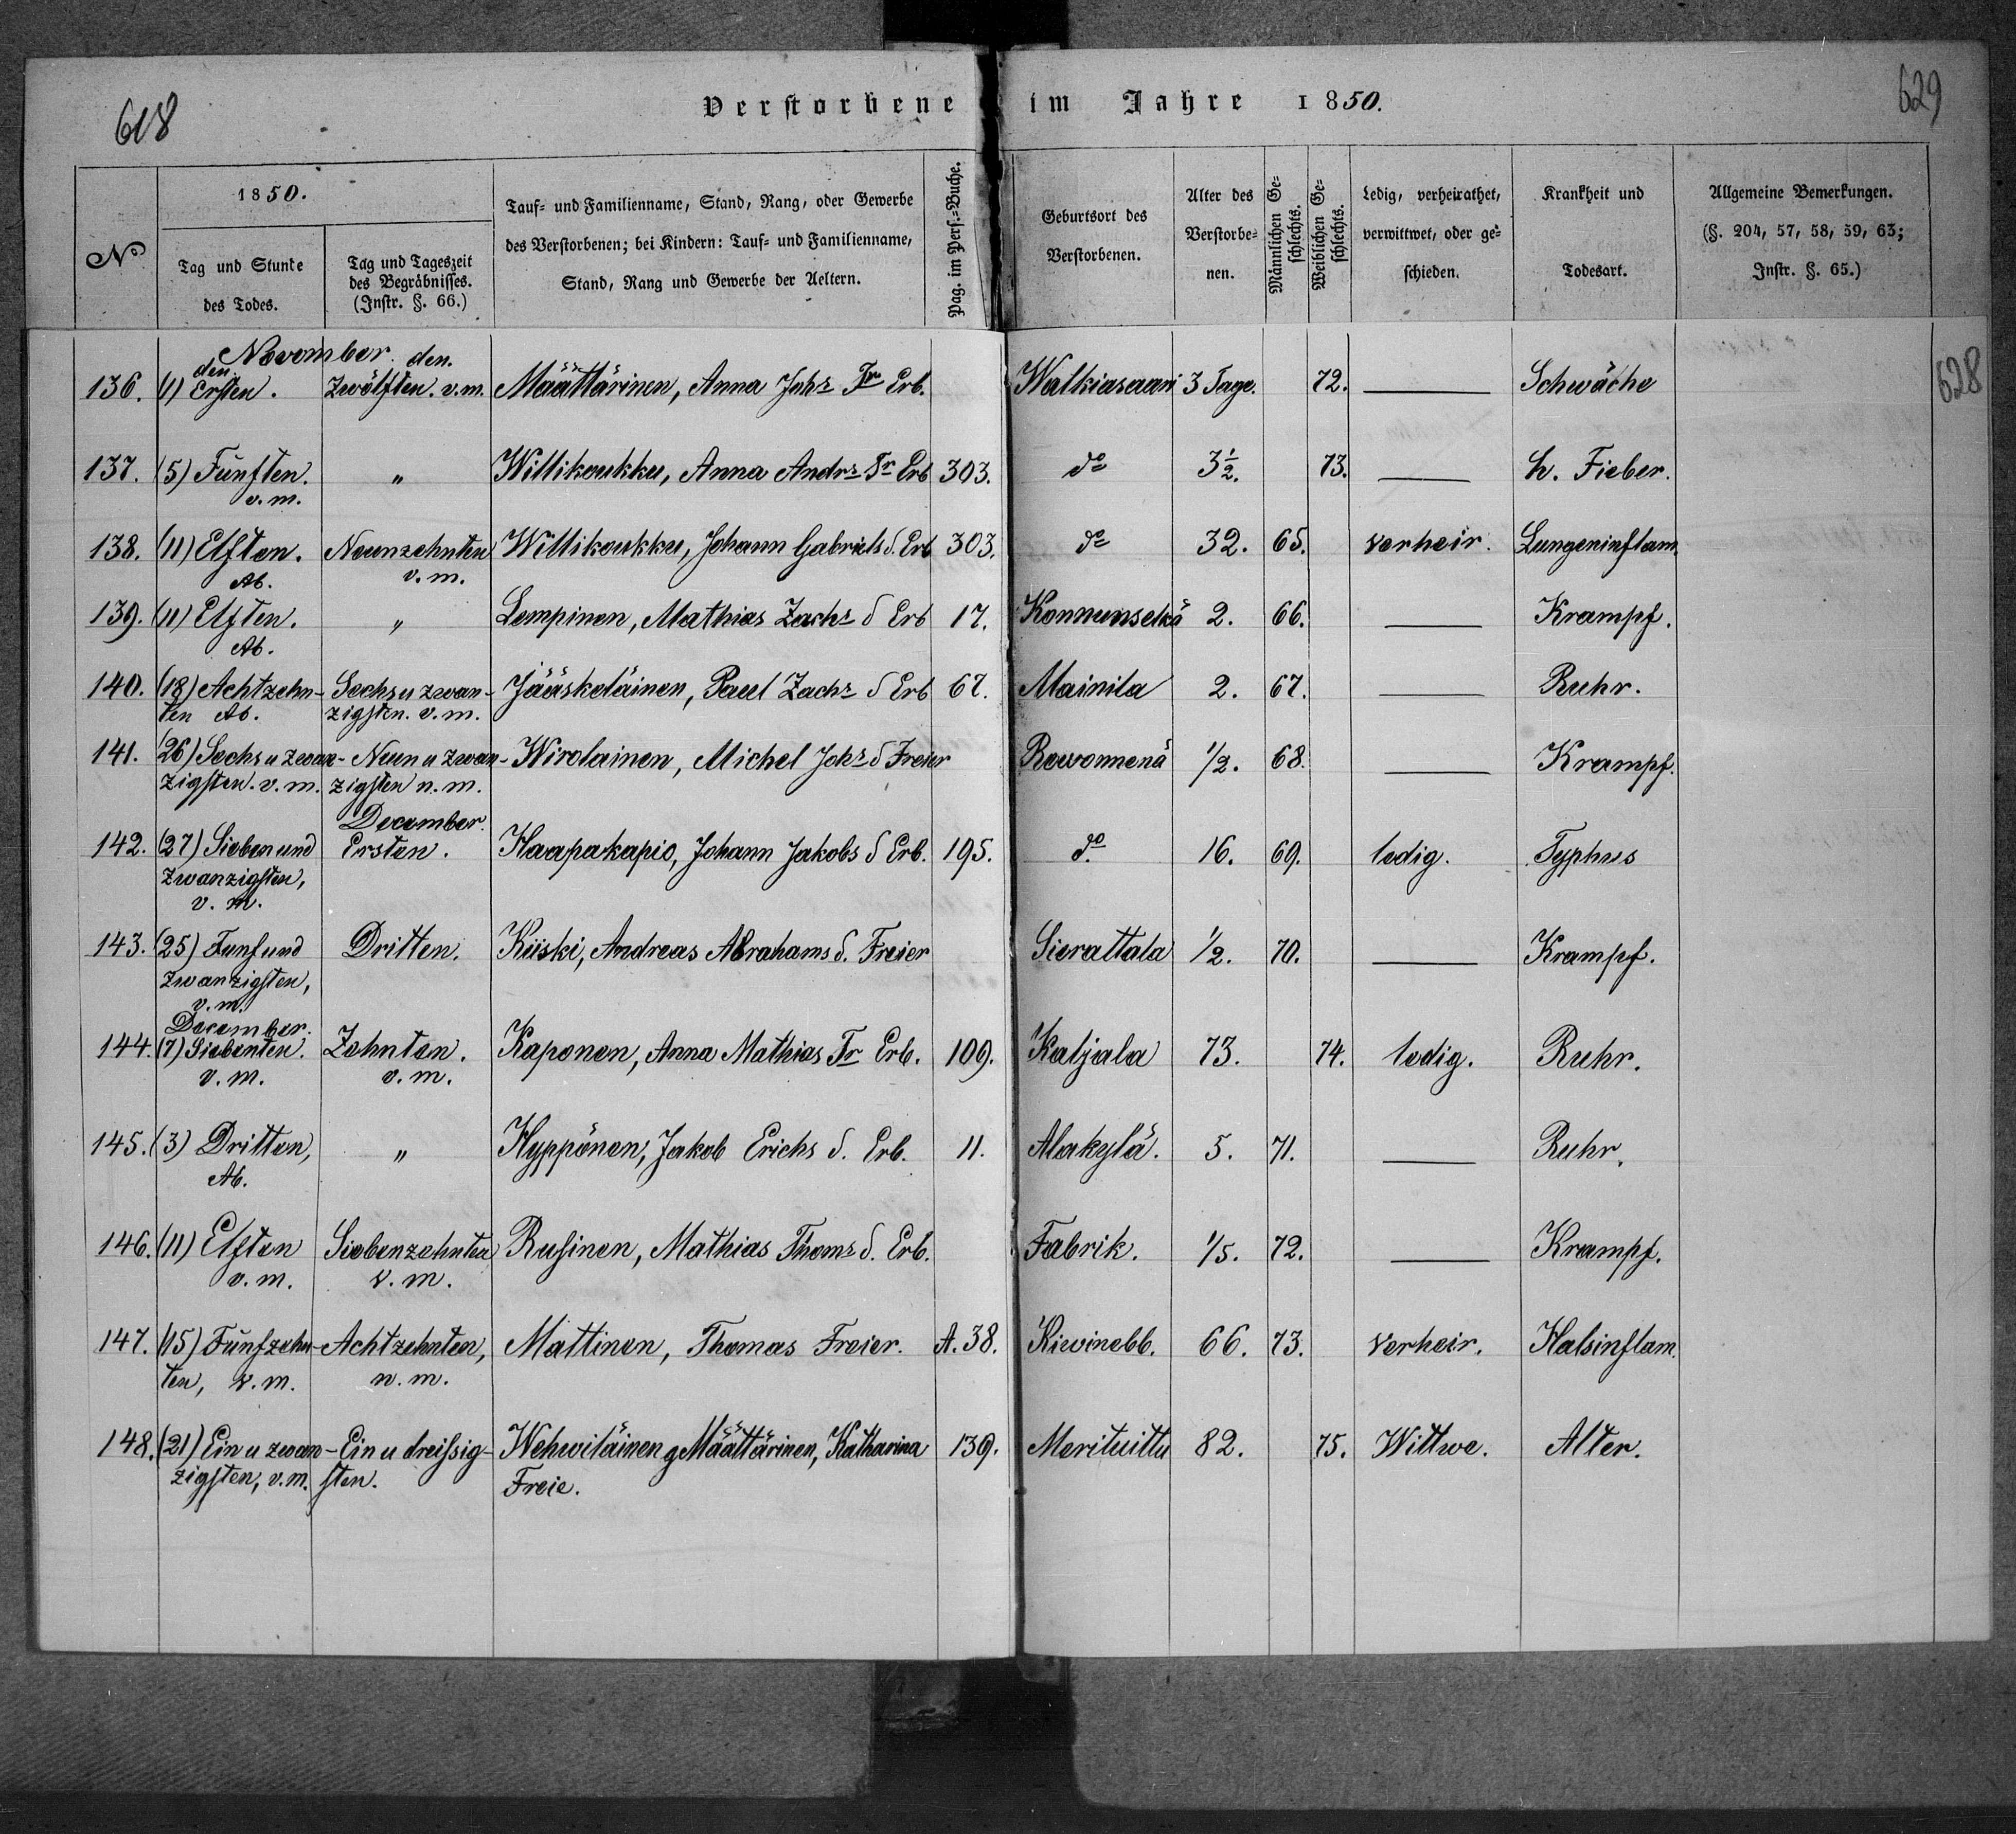 618
Verstorbene im Jahre 1850.
629
628
№
1850.
Tag und Stunde des Todes.
Tag und Tageszeit des Begräbnisses. (Instr. §. 66.)
Tauf- und Familienname, Stand, Rang, oder Gewerbe des Verstorbenen; bei Kindern: Tauf- und Familienname, Stand, Rang und Gewerbe der Aeltern.
Pag. im Pers.-Buche.
Geburtsort des Verstorbenen.
Alter des Verstorbe-nen.
Männlichen Ge-schlechts.
Weiblichen Ge-schlechts.
Ledig, verheirathet, verwittwet, oder ge-schieden.
Krankheit und Todesart.
Allgemeine Bemerkungen. (§. 204, 57, 58, 59, 63; Instr. §. 65.)
November.
den. den.
136. (1) Ersten. Zwölften. v.m. Määttärinen, Anna Johs Tr Erb. Walkiasaari 3 Tage. 72. — Schwäche
137. (5) Fünften. " Willikoukku, Anna Andrs Tr Erb 303. do 3½. 73. — h. Fieber.
v.m.
138. (11) Elften. Neunzehnten Willikoukku, Johann Gabriels S. Erb 303. do 32. 65. verheir. Lungeninflam.
Ab. v.m.
139. (11) Elften. " Lempinen, Mathias Zachs S Erb 17. Konnunselkä 2. 66. — Krampf.
Ab.
140. (18) Achtzehn- Sechs u zwan- Jääskeläinen, Paul Zachs S Erb 67. Mainila 2. 67. — Ruhr.
ten Ab. zigsten. v.m.
141. (26) Sechs u zwan- Neun u zwan- Wirolainen, Michel Johs S Freier Rowonmenä 1/2. 68. — Krampf.
zigsten. v.m. zigsten n.m.
December.
142. (27) Sieben und Ersten. Haapakapio, Johann Jakobs S Erb. 195. do. 16. 69. ledig. Typhus
zwanzigsten,
v.m.
143. (25) Funf und Dritten. Kiiski, Andreas Abrahams S. Freier Sierattala 1/2. 70. — Krampf.
zwanzigsten,
v.m.
December.
144. (7) Siebenten. Zehnten. Kaponen, Anna Mathias Tr Erb. 109. Kaljala 73. 74. ledig. Ruhr.
v.m. v.m.
145. (3) Dritten, " Hyppönen, Jakob Erichs S. Erb. 11. Alakylä. 5. 71. — Ruhr.
Ab.
146. (11) Elften Siebenzehnten Rusinen, Mathias Thoms S. Erb. Fabrik. 1/5. 72. — Krampf.
v.m. v.m.
147. (15) Fünfzehn- Achtzehnten, Mattinen, Thomas Freier. A. 38. Kiwinebb. 66. 73. verheir. Halsinflam.
ten, v.m. n.m.
148. (21) Ein u zwan- Ein u dreissig- Wehwiläinen g Määttärinen, Katharina 139. Merituittu 82. 75. Wittwe. Alter.
zigsten, v.m. sten. Freie.